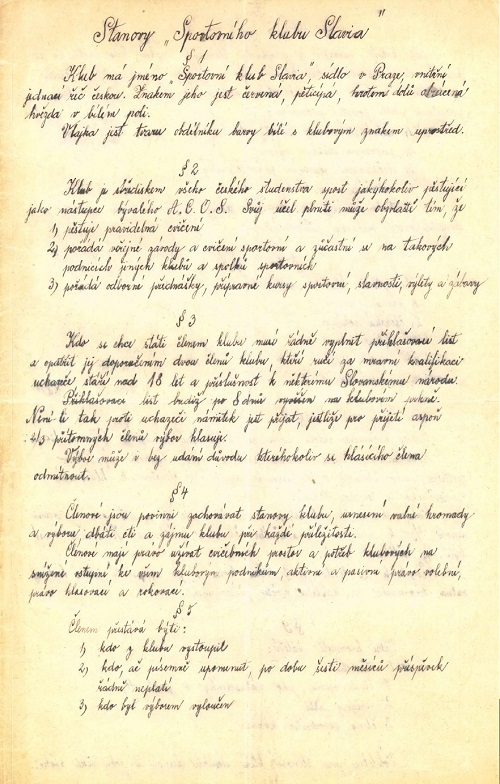 Stanovy „Sportovního klubu Slavia"
§ 1
Klub má jméno „Sportovní klub Slavia", sídlo v Praze, vnitřní
jednací řeč českou. Znakem jeho jest červená, pěticípá, hrotem dolů obrácená
hvězda v bílém poli.
Vlajka jest tvaru obdélníku barvy bílé s klubovým znakem uprostřed.
§ 2
Klub je střediskem všeho českého studenstva sport jakýkoliv pěstující
jako nástupce bývalého A.C.O.S. Svůj účel plniti může obzvláště tím, že
1) pěstuje pravidelná cvičení
2) pořádá veřejné závody a cvičení sportovní a zúčastní se na takových
podnicích jiných klubů a spolků sportovních
3) pořádá odborné přednášky, přípravné kursy sportovní, slavnosti, výlety a zábavy
§ 3
Kdo se chce státi členem klubu musí řádně vyplnit přihlašovací list
a opatřit jej doporučením dvou členů klubu, kteří ručí za mravní kvalifikaci
uchazeče stáří nad 18 let a příslušnost k některému Slovanskému národu.
Přihlašovací list budiž po 8 dnů vyvěšen na klubovním prkně.
Není-li tak proti uchazeči námitek jest přijat, jestliže pro přijetí aspoň
2/3 přítomných členů výboru hlasuje.
Výbor může i bez udání důvodu kteréhokoliv se hlásícího člena
odmítnout.
§ 4
Členové jsou povinni zachovávat stanovy klubu, usnesení valné hromady
a výboru, dbáti cti a zájmu klubu při každé příležitosti.
Členové mají právo užívat cvičebních prostor a potřeb klubových na
snížené vstupné ke všem klubovým podnikům, aktivní a pasivní právo volební,
právo hlasovací a rokovací.
§ 5
Členem přestává býti:
1) kdo z klubu vystoupil
2) kdo, ač písemně upomenut, po dobu šesti měsíců příspěvek
řádně neplatí
3) kdo byl výborem vyloučen